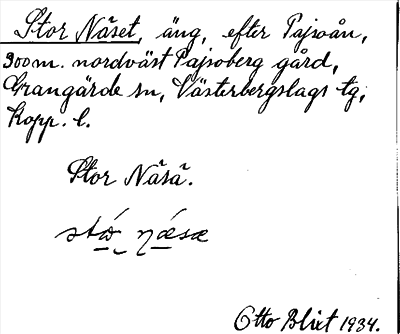 Stor Näset, äng, efter Pajsoån,
300 m. nordväst Pajsoberg gård,
Grangärde sn, Västerbergslags tg,
Kopp. l.
Stor Näsä.
Otto Blixt 1934.